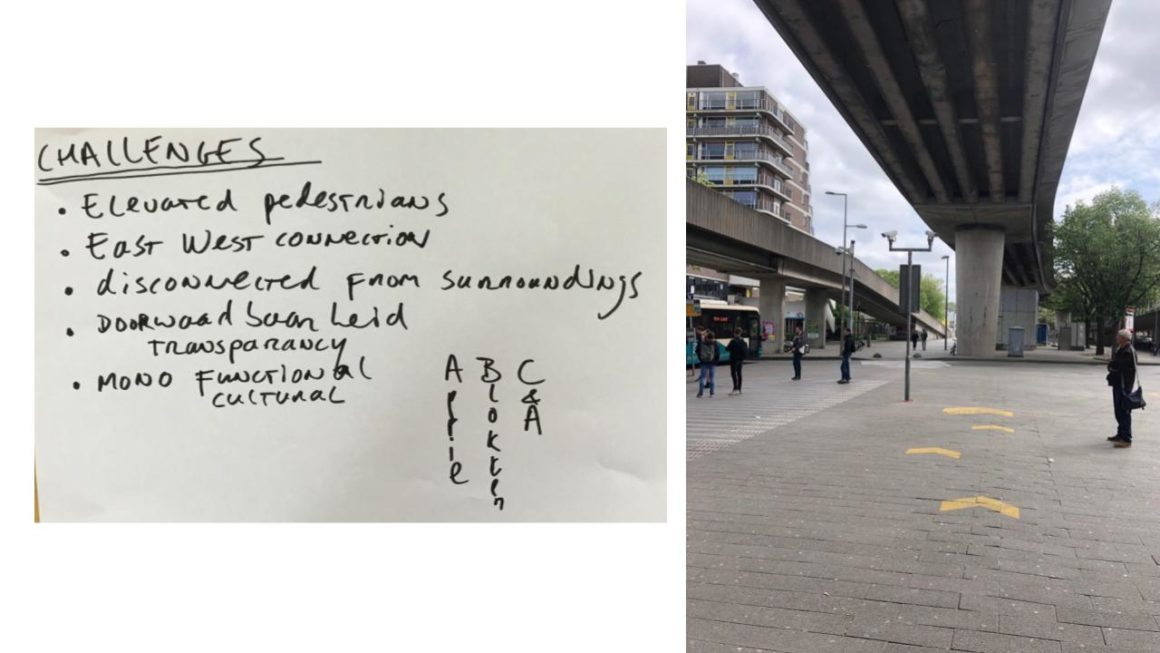 CHALLENGES
• Elevated pedestrians
• East West connection
• disconnected from surroundings
• Doorwaadbaarheid
transparancy
• mono functional
cultural
Appie
Blokker
C&A